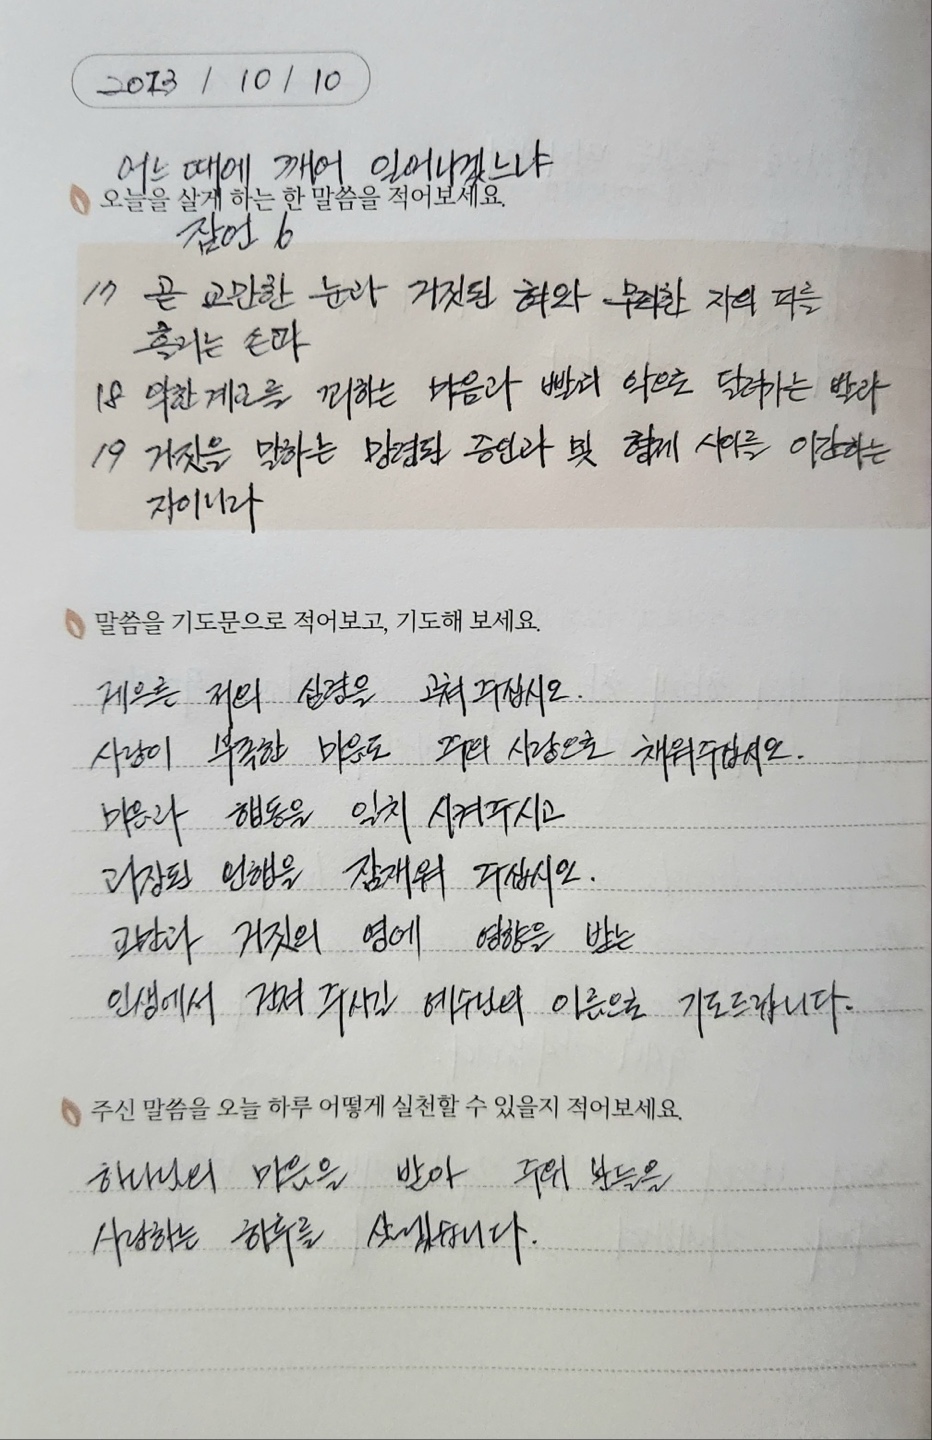 2023 / 10 / 10
어느 때에 깨어 일어나겠느냐
오늘을 살게 하는 한 말씀을 적어보세요.
잠언 6
17 곧 교만한 눈과 거짓된 혀와 무죄한 자의 피를
흘리는 손과
18 악한 계교를 꾀하는 마음과 빨리 악으로 달려가는 발과
19 거짓을 말하는 망령된 증인과 및 형제 사이를 이간하는
자이니라
말씀을 기도문으로 적어보고, 기도해 보세요.
게으른 저의 심령을 고쳐 주십시오.
사랑이 부족한 마음도 주의 사랑으로 채워주십시오.
마음과 행동을 일치 시켜주시고
과장된 언행을 잠재워 주십시오.
교만과 거짓의 영에 영향을 받는
인생에서 건져 주시길 예수님의 이름으로 기도드립니다.
주신 말씀을 오늘 하루 어떻게 실천할 수 있을지 적어보세요.
하나님의 마음을 받아 주위 분들을
사랑하는 하루를 살겠습니다.